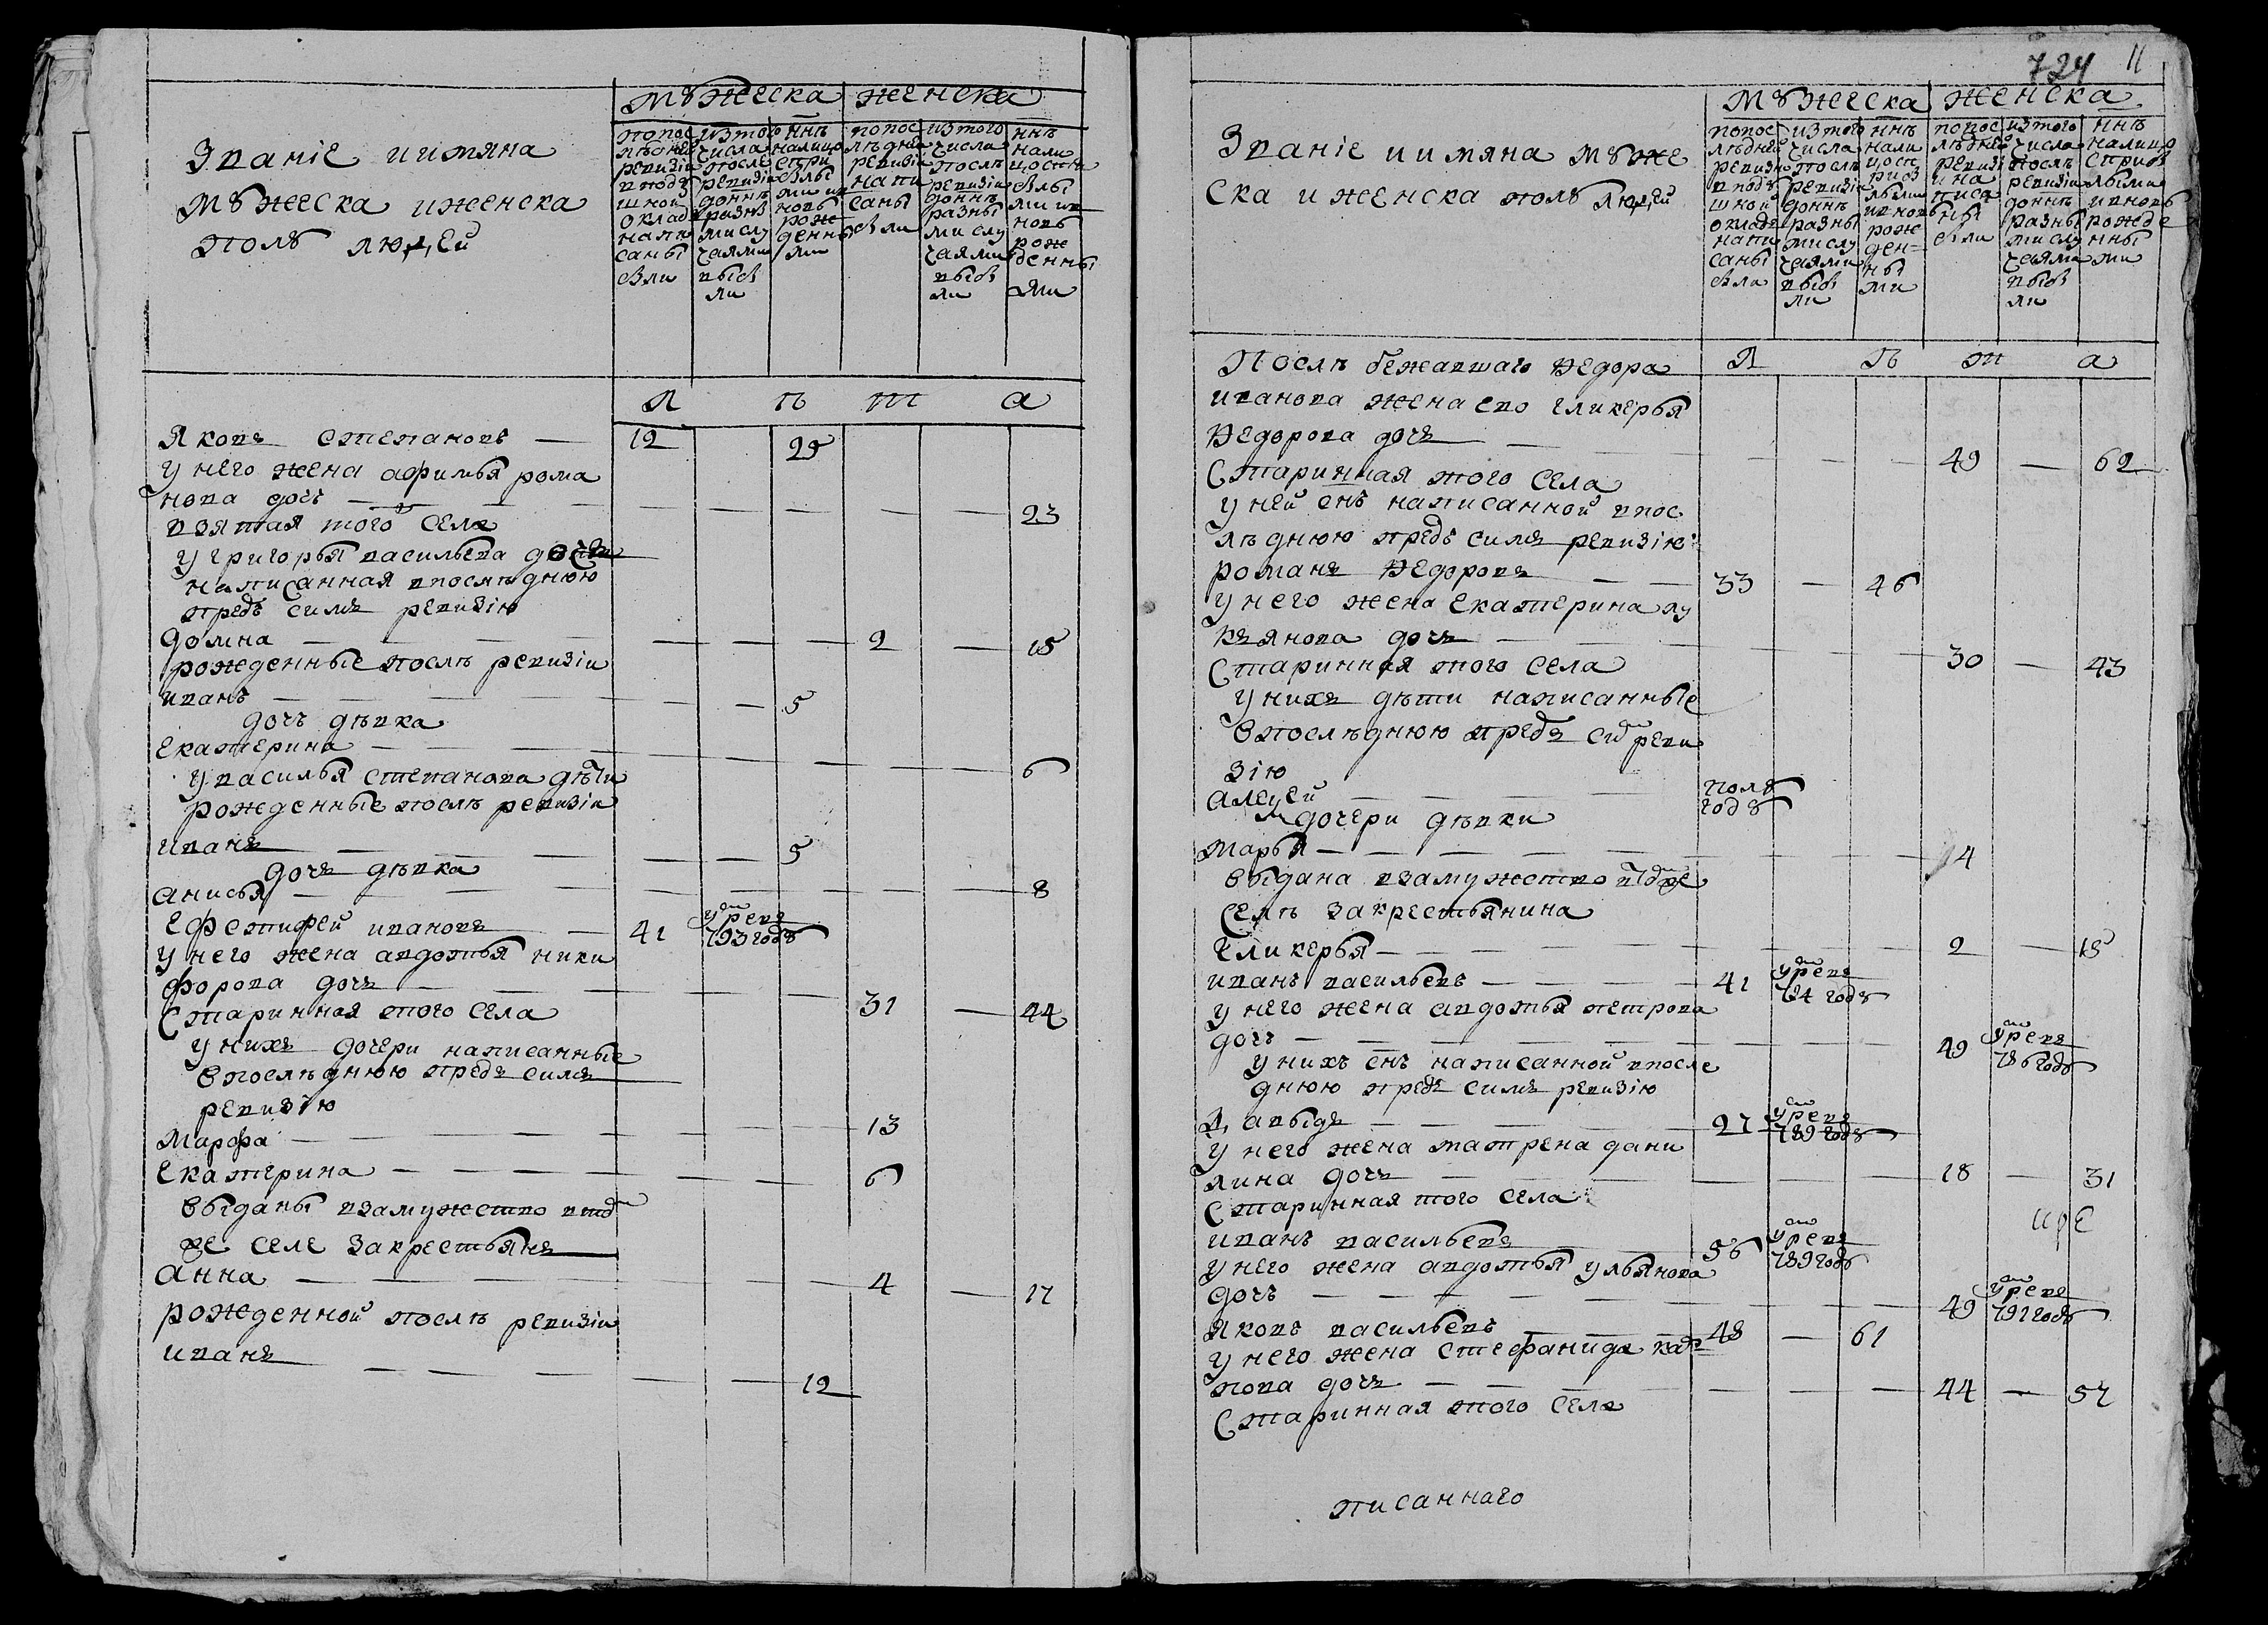 Званіе и имяна
мужеска иженска
полу людей
мужеска женска
попос лѣдней ревизіи вподу шной оклад напи саны были
изтого числа после ревизіи доннѣ разны мислу чаями выбы ли
ннѣ налицо спри былы ми ив новь рож денны ми
попос лѣдней ревизіи напи саны были
изтого числа послѣ ревизіи доннѣ разны мислу чаями выбы ли
ннѣ нали цо спри былы ми ив новь рож денны ми
Л Ѣ т а
Яковъ степановъ — 12 25
у него жена афимья рома
нова дочь — 23
взятая того села
у григорья васильева дочь
написанная впослѣднюю
предъ симъ ревизію
домна — 2 — 15
рожденные послѣ ревизіи
иванъ — 5
дочь дѣвка
екатерина — 6
у василья степанова дѣти
рожденные послѣ ревизіи
иванъ — 5
дочь дѣвка
анисья — 8
ефстифей ивановъ — 41 умре въ 793 году
у него жена авдотья ники
форова дочь — 31 — 44
Старинная того села
у нихъ дочери написанные
впослѣднюю предъ симъ
ревизію
Марфа — 13
екатерина — 6
выданы взамужество втом
же селе закрестьянъ
Анна — 4 — 17
рожденной послѣ ревизіи
иванъ — 12
724 11
Званіе и имяна муже
ска и женска полу людей
мужеска женска
попос лѣдней ревизіи вподу шной окладъ напи саны были
изтого числа послѣ ревизіи доннѣ разны мислу чаями выбы ли
ннѣ нали цо сп рибы лыми ивновь рож ден= ны ми
попос лѣдней ревизі и на писа ны были
изтого числа послѣ ревизіи доннѣ разны мислу чаями выбы ли
ннѣ налицо сприбы лыми ивновь рожде нны ми
Л Ѣ т а
Послѣ бежавшаго Федора
иванова жена ево гликерья
Федорова дочь — 49 — 62
Старинная того села
у ней снъ написанной впос
лѣднюю предъ симъ ревизію
романъ Федоровъ — 33 — 46
у него жена екатерина лу
кьянова дочь — 30 — 43
Старинная того села
у нихъ дѣти написанные
впослѣднюю предъ сим реви
зію
алецей — полу году
дочери дѣвки
марья — 14
выдана взамужество втом же
селѣ закрестьянина
гликерья — 2 — 15
иванъ васильевъ — 41 умре въ 784 году
у него жена авдотья петрова
дочь — 49 умре въ 786 году
у нихъ снъ написанной впосле
днюю предъ симъ ревизію
Давыдъ — 27 умре въ 789 году
у него жена матрена дани
лина дочь — 18 — 31
Старинная того села
иванъ васильевъ 56 умре въ 789 году
у него жена авдотья ульянова
дочь — 49 умре въ 792 году
Яковъ васильевъ — 48 — 61
у него жена стефанида кар
пова дочь — 44 — 57
Старинная того села
писаннаго